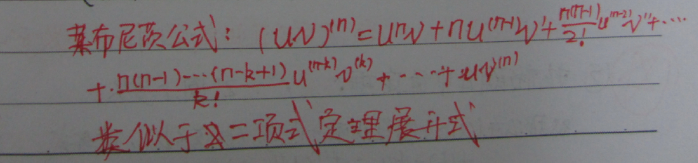 莱布尼茨公式： (uv)⁽ⁿ⁾ = uⁿv + nu⁽ⁿ⁻¹⁾v' + n(n-1)/2! uⁿ⁻²⁾v'' + ⋯
+ n(n-1)⋯(n-k+1)/k! u⁽ⁿ⁻ᵏ⁾v⁽ᵏ⁾ + ⋯ + uv⁽ⁿ⁾
类似于二项式定理展开式